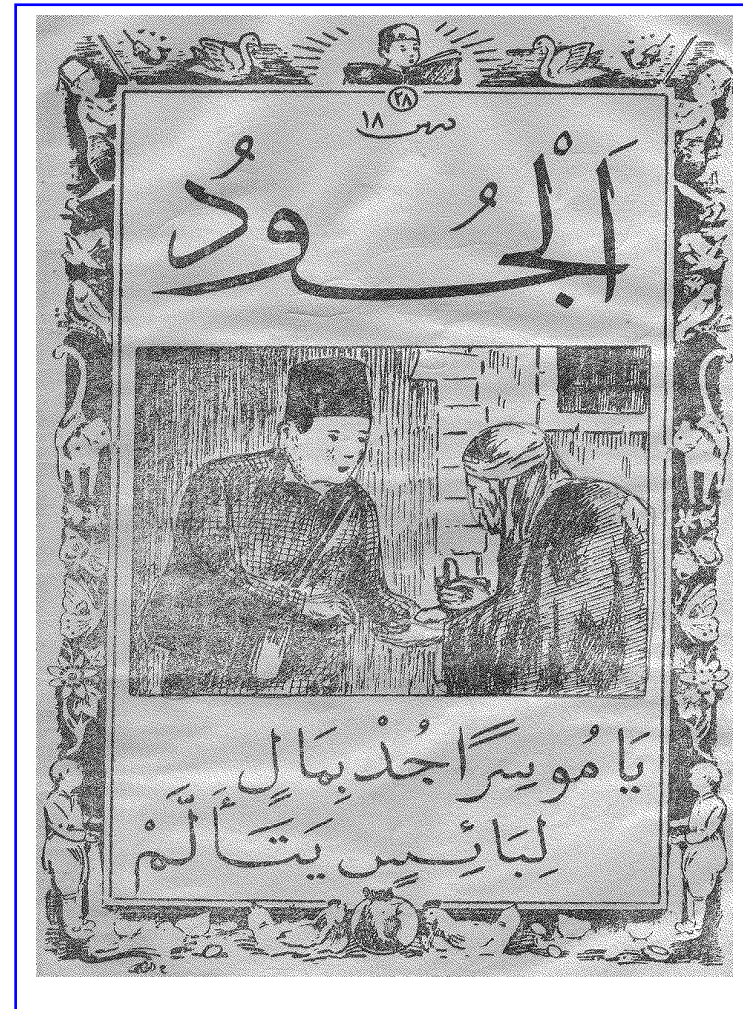 ٢٨
١٨
اَلْجُودُ
يَا مُوسِرًا جُدْ بِمَالٍ
لِبَائِسٍ يَتَأَلَّمْ